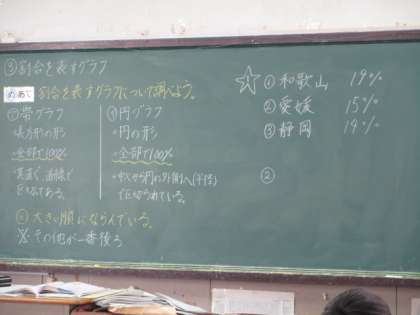 ③割合を表すグラフ
めあて 割合を表すグラフについて調べよう。
帯グラフ
・長方形の形
・全部で100%
・真直ぐ、直線で
区切ってある。
円グラフ
・円の形
・全部で100%
・中心から円の外側へ(半径)
で区切られている。
大きい順にならんでいる。
※その他が一番後ろ
1 ①和歌山 19%
②愛媛 15%
③静岡 14%
②